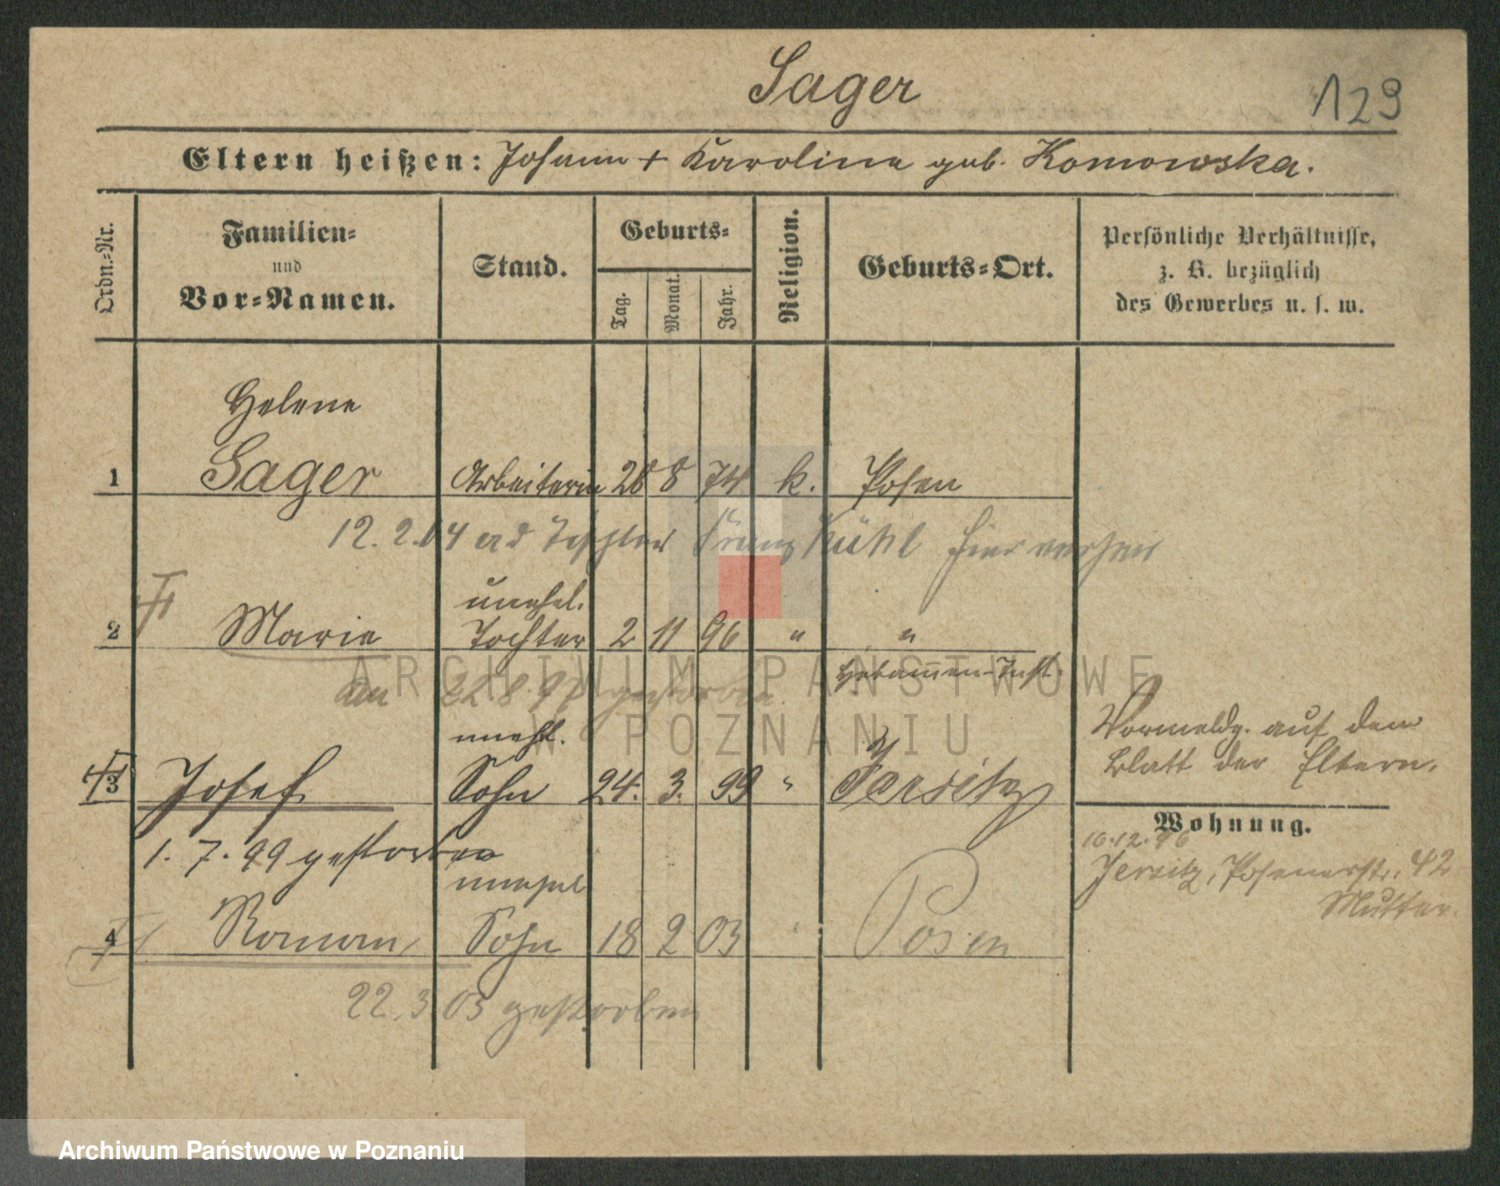 Sager
129
Eltern heißen: Johann + Karoline geb. Komowska.
Ordn.-Nr.
Familien-
und
Vor-Namen.
Stand.
Geburts-
Tag.
Monat.
Jahr.
Religion.
Geburts-Ort.
Persönliche Verhältnisse,
z. B. bezüglich
des Gewerbes u. s. w.
Helene
1 Sager Arbeiterin 28 8 74 k. Posen
12.2.04 Franz Kühl hier
unehel.
2 Marie Tochter 2 11 96 " "
Hebammen-Inst.
am 22.8.97 gestorben
unehl.
3 Josef Sohn 24. 3. 99 " Jersitz
Vormeldg. auf dem
Blatt der Eltern.
Wohnung.
10.12.96
Jersitz, Posenerstr. 42
Mutter.
1. 7. 99 gestorben
unehel
4 Roman Sohn 18 2 03 " Posen
22.3 03 gestorben
ARCHIWUM PAŃSTWOWE
W POZNANIU
Archiwum Państwowe w Poznaniu